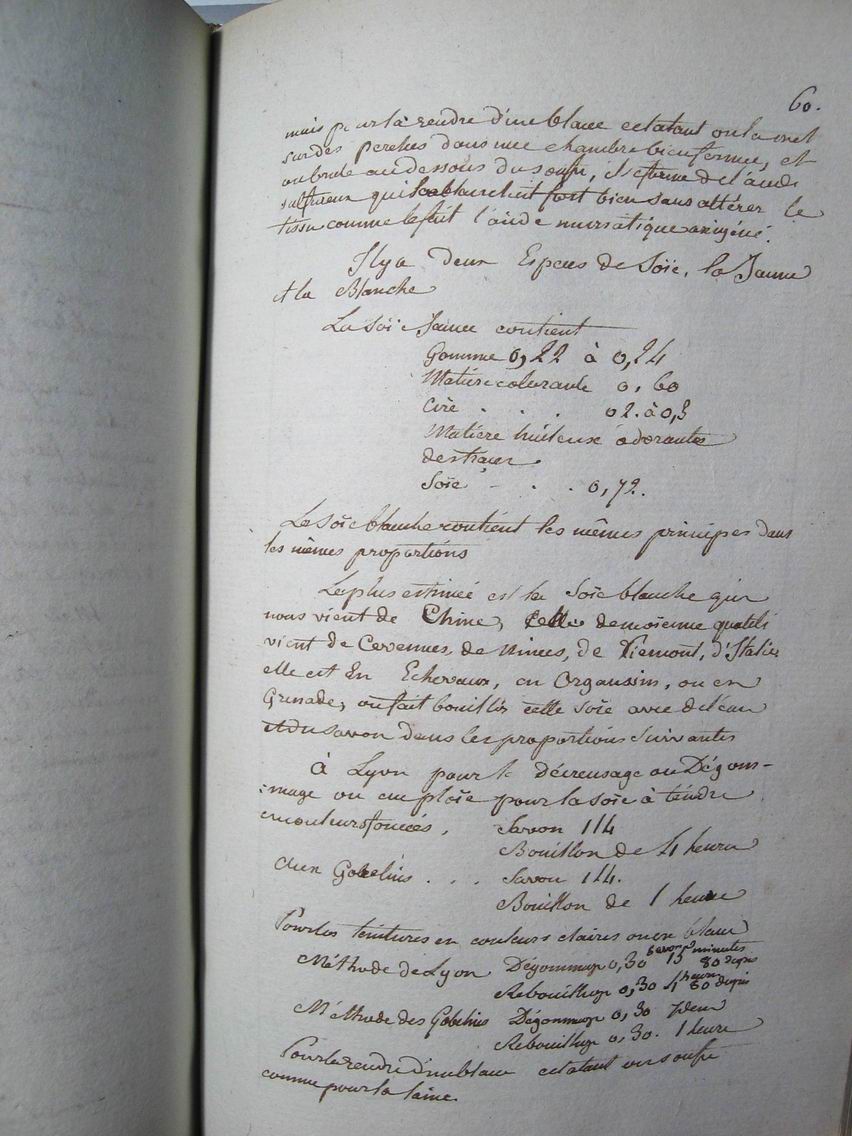 60.
mais pour la rendre d'une blanc eclatant on la met
sur des perches dans une chambre bien fermée, et
on brule au dessous du soufre, il se forme de l'acide
sulfureux qui la blanchit fort bien sans altérer le
tissu comme le fait l'acide muriatique oxigéné.
Il y a deux Especes de Soïe, la Jaune
et la Blanche
La Soïe Jaune contient
Gomme 0,22 à 0,24
Matière colorante 0,60
Cire . . . 02. à 0,3
Matière huileuse odorante
des traces
Soïe - . . 0,72.
La Soïe blanche contient les mêmes principes dans
les mêmes proportions
La plus estimée est la Soïe blanche qui
nous vient de Chine, celle de moienne qualité
vient de Cevennes, de Nimes, de Piemont, d'Italie
elle est En Echevaux, en Organsin, ou en
Grenade, on fait bouillir cette soïe avec de l'eau
et du savon dans les proportions suivantes
à Lyon pour le décreusage ou Dégom-
:mage on emploïe pour la soïe à teindre
en couleurs foncées, Savon 1/4
Bouillon de 4 heures
aux Gobelins . . . Savon 1/4.
Bouillon de 1 heure
Pour les teintures en couleurs claires ou en blanc
Méthode de Lyon Dégommage 0,30 savon 15 minutes 80 degrés
Rebouillage 0,30 4 heures 80 degrés
Méthode des Gobelins Dégommage 0,30 idem
Rebouillage 0,30. 1 heure
Pour la rendre d'une blanc eclatant on soufre
comme pour la laine.